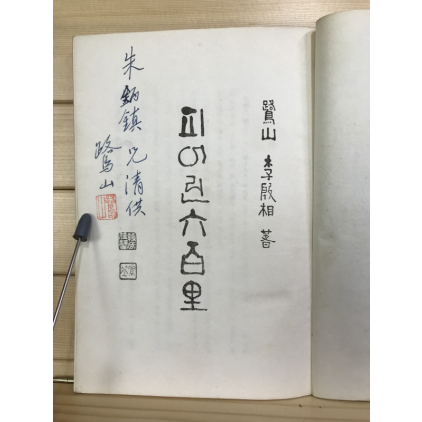 鷺山 李殷相 著
피어린六百里
朱炳鎮 兄 清供
鷺山